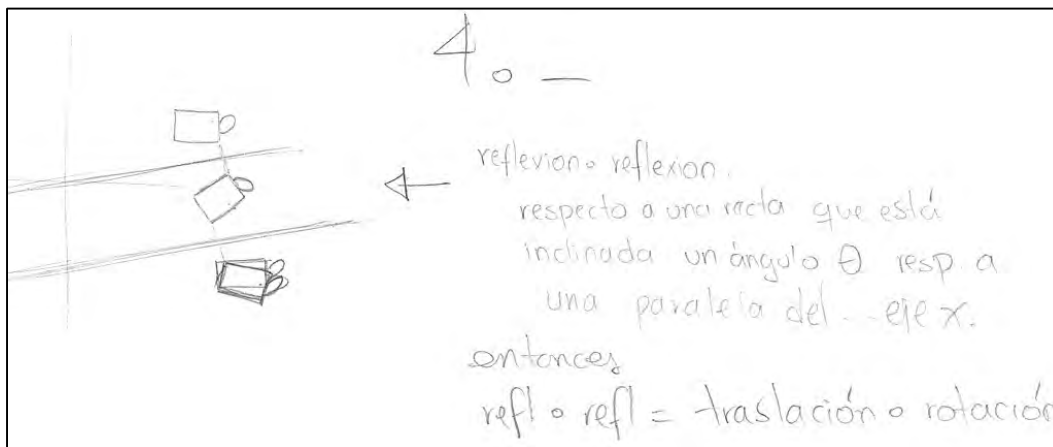 4. —
reflexion ∘ reflexion.
respecto a una recta que está
inclinada un ángulo θ resp. a
una paralela del ... eje x.
entonces
refl ∘ refl = traslación ∘ rotación